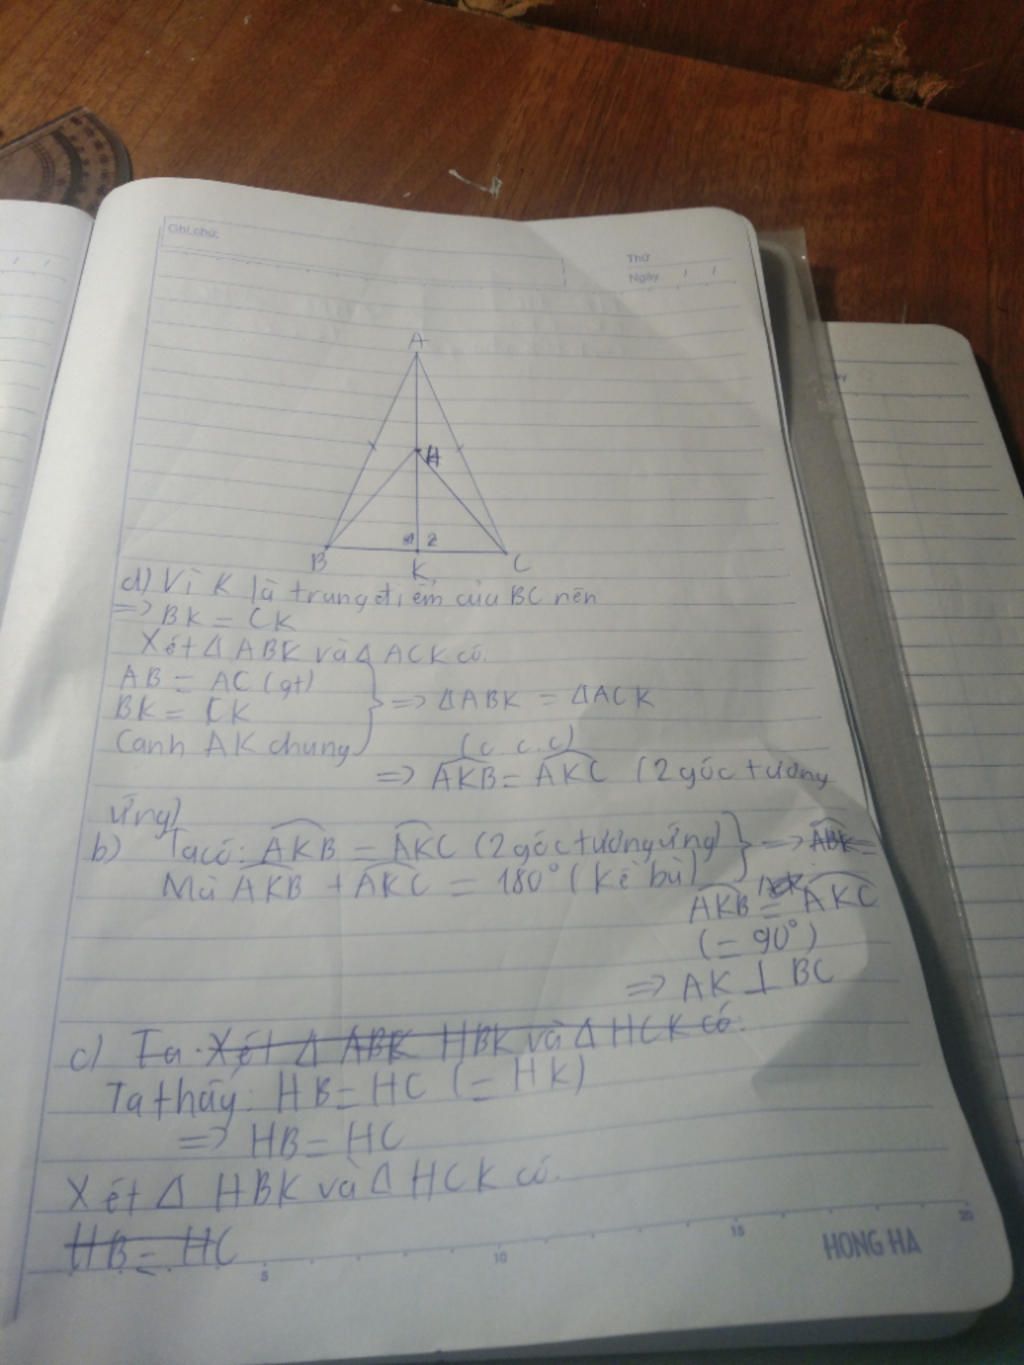 Ghi chú:
Thứ
Ngày / /
A
H
2
B
K
C
d) Vì K là trung điểm của BC nên
=> BK = CK
Xét Δ ABK và Δ ACK có.
AB = AC (gt)
BK = CK
Canh AK chung
=> ΔABK = ΔACK
(c c.c)
=> AKB = AKC (2 góc tương
ứng)
b) Ta có: AKB = AKC (2 góc tương ứng) => ABK =
Mà AKB + AKC = 180° (kề bù)
AKB = AKC
(= 90°)
=> AK ⊥ BC
c) Ta. Xét Δ ABK HBK và Δ HCK có:
Ta thấy: HB = HC (= HK)
=> HB = HC
Xét Δ HBK và Δ HCK có.
HB = HC
5 10 15 20
HONG HA